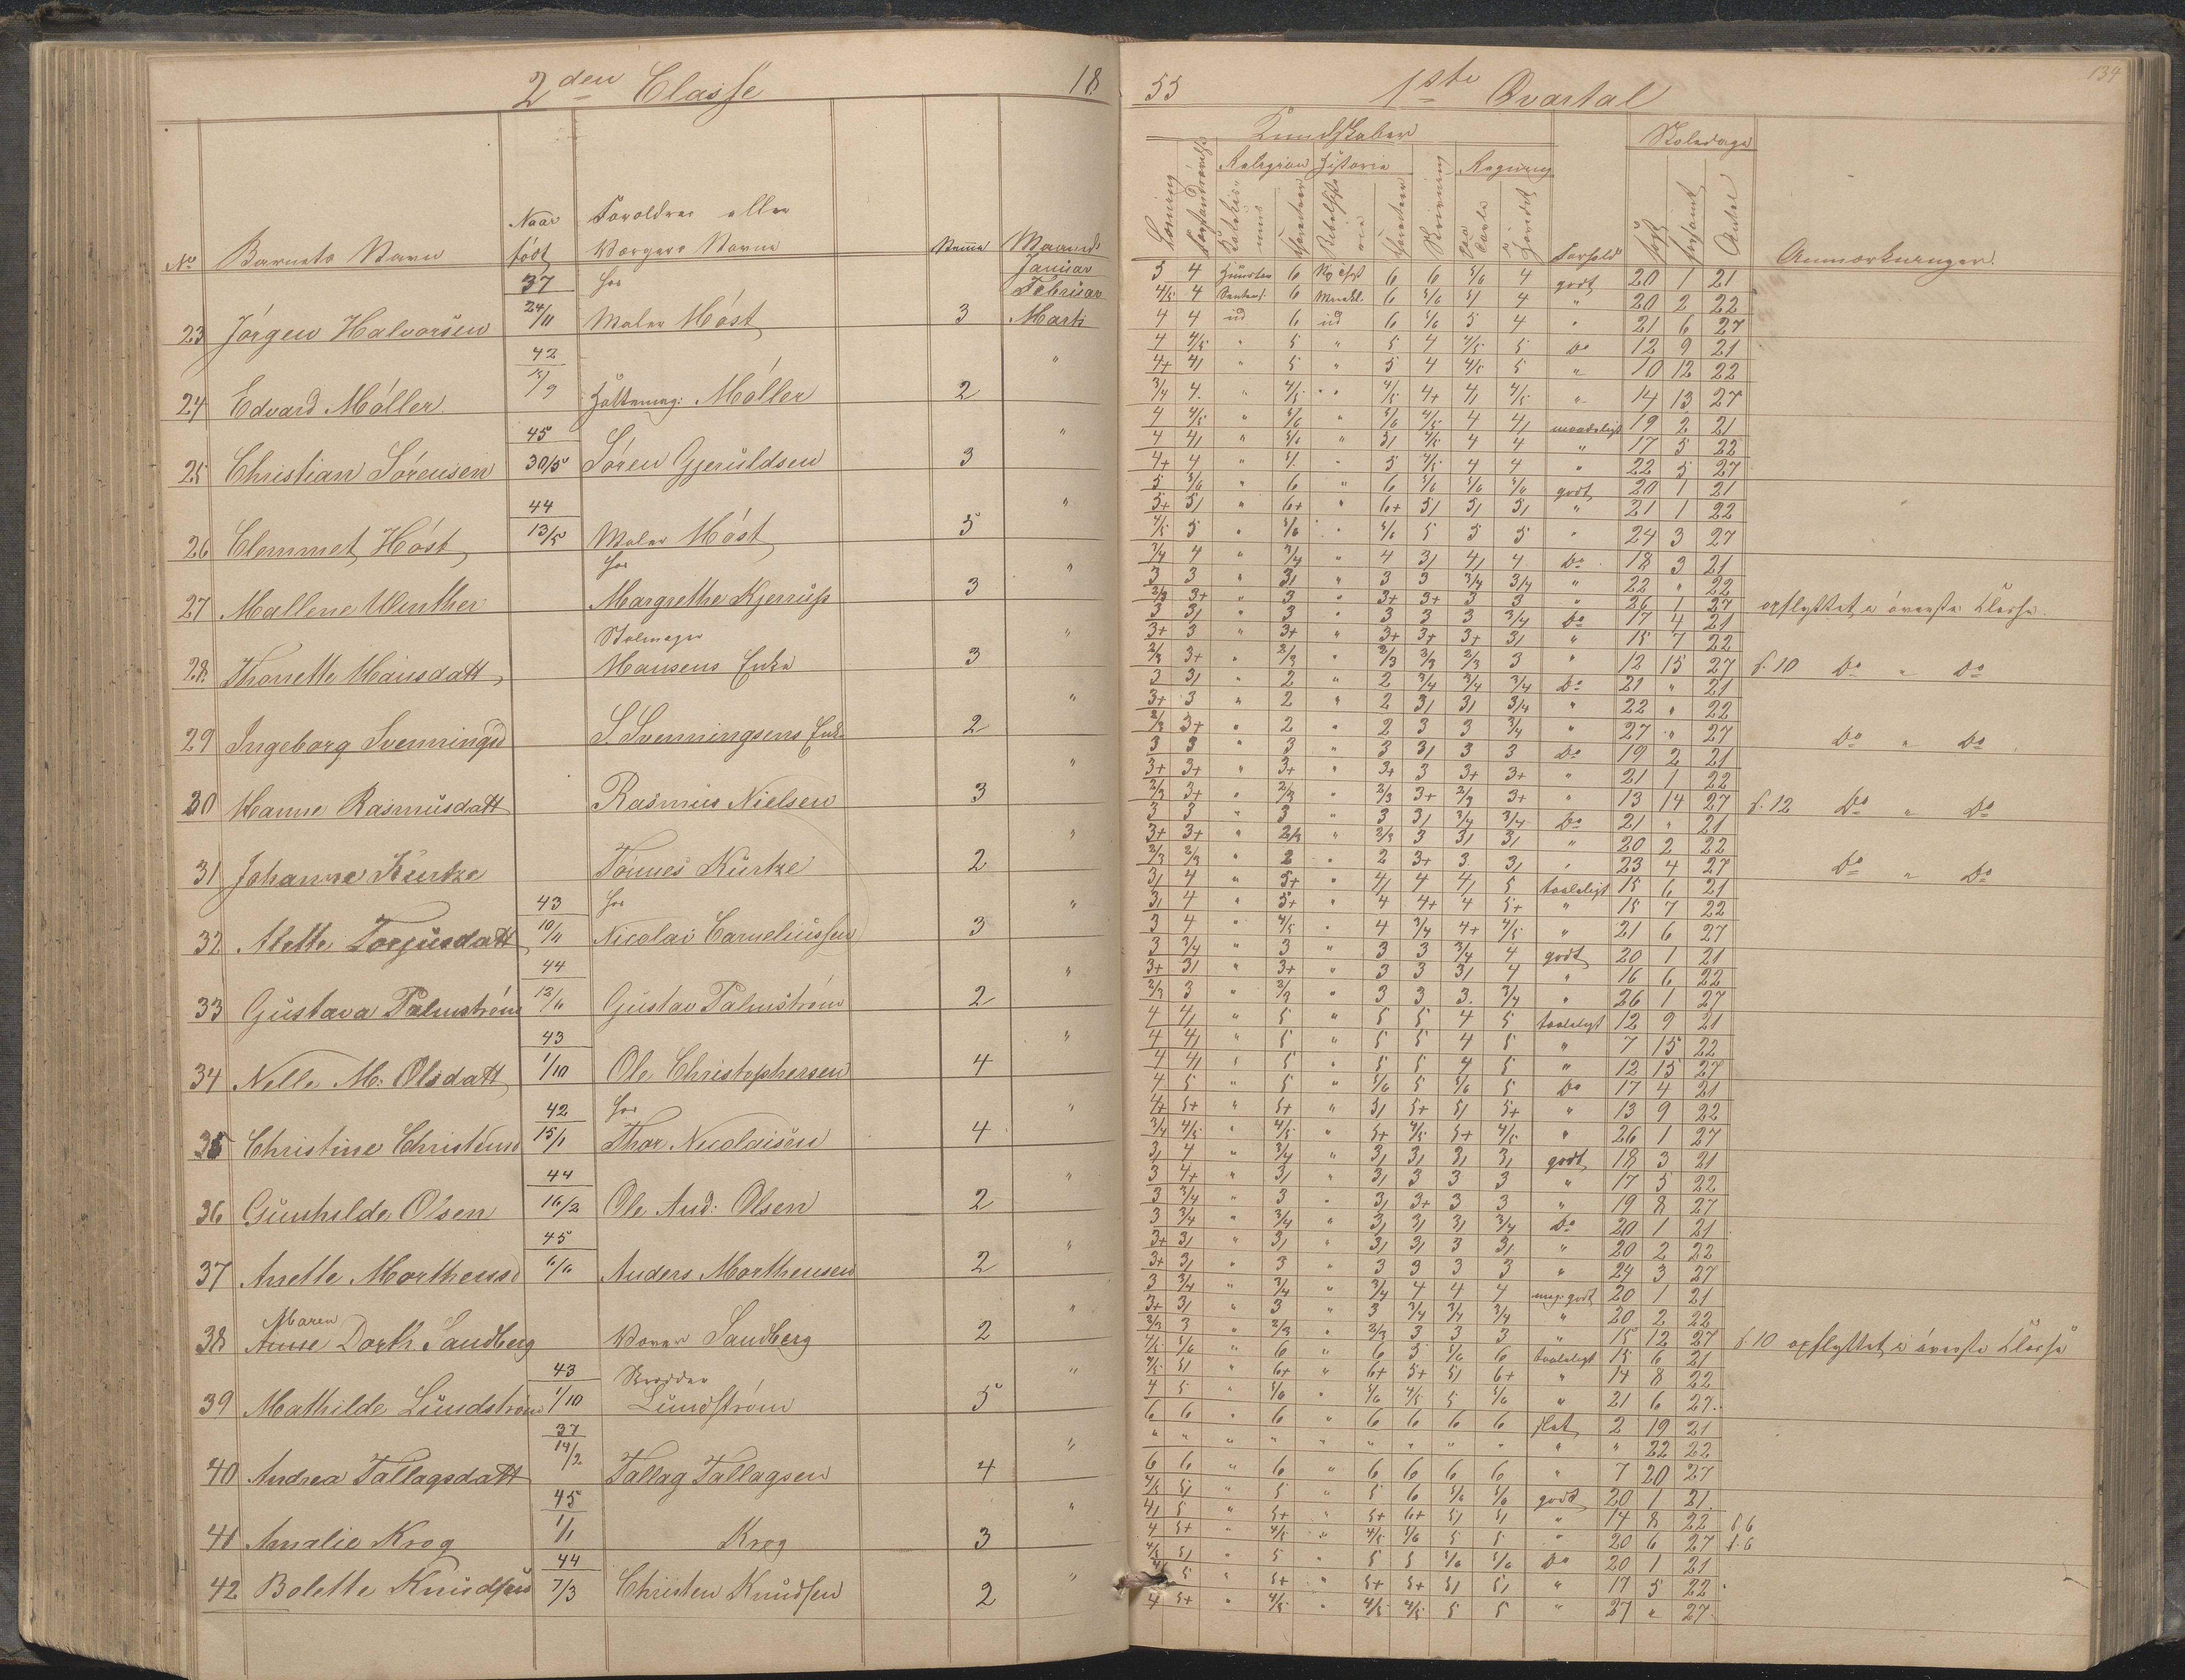 2den Classe 18
53 1ste Qvartal
134
Kundskaber
Skoledage
Religion Historie Regning
No Barnets Navn Naar født Forældres eller Værgers Navne Maaned
Læsning Skrivning Forhold Anmærkninger.
37 hos Januar
Februar
23 Jörgen Halvorsen 24/11 Maler Höst 3 Marts
42 "
24 Edvard Möller Möller 2
45 "
25 Christian Sörensen 30/5 Sören Gjeruldsen 3
44 "
26 Clemmet Höst 13/5 Maler Höst 5
hos "
27 Mallene Winther Margrethe Kjerrulf 3
"
28. Thorette Hansdatt Hansens Enke 3
"
29 Ingeborg Svenningsd S. Svenningsens Enke 2
"
30 Hanne Rasmusdatt Rasmus Nielsen 3
"
31 Johanna Kürtze Tönnes Kürtze 2
43 hos "
32 Alette Torjusdatt 10/11 Nicolai Corneliussen 3
44 "
33 Gustava Palmström 12/6 Gustav Palmström 2
43 "
34 Nelle M: Olsdatt 1/10 Ole Christophersen 4
42 hos "
35 Christine Christens 15/1 Thor Nicolaisen 4
44 "
36 Gunhilde Olsen 16/2 Ole And: Olsen 2
45 "
37 Anette Morthensd 6/6 Anders Morthensen 2
Maren "
38 Anne Dorth. Sandberg Sandberg 2
43 "
39 Mathilde Lundström 1/10 Lundström 5
37 "
40 Andrea Tallagsdatt 14/2 Tallag Tallagsen 4
45 "
41 Amalie Krog 1/1 Krog 3
44 "
42 Bolette Knudsen 7/3 Christen Knudsen 2
5 4 6 6 6 5/6 4 godt 20 1 21
4/5 4 6 6 5/6 5/ 4 " 20 2 22
4 4 id 6 id 6 5/6 5 4 " 21 6 27
4 4/5 " 5 " 5 4 4/5 5 Do 12 9 21
4+ 4/ " 5 " 5 4 4/5 5 " 10 12 22
3/4 4. " 4/5 " 4/5 4+ 4/ 4/5 " 14 13 27
4 4/5 " 5/6 " 5/6 4/5 4 4/ maadeligt 19 2 21
4 4/ " " 5/ 4/5 4 4 " 17 5 22
4+ 4 " 5/ " 5 4/5 4 4 " 22 5 27
5 5/6 " 6 " 6 5/6 5/6 5/6 godt 20 1 21
5+ 5/ " 6+ " 6+ 5/ 5/ 5/ " 21 1 22
4/5 5 " 5/6 " 5/6 5 5 5 " 24 3 27
3/4 4 " 3/4 " 4 3/ 4/ 4 Do 18 3 21
3 3 " 3/ " 3 3 3/4 3/4 " 22 " 22
2/3 3+ " 3 " 3+ 3+ 3 3 " 26 1 27 opflyttet i överste Klasse.
3 3/ " 3 " 3 3 3 3/4 Do 17 4 21
3+ 3 " 3+ " 3+ 3+ 3+ 3/ " 15 7 22
2/3 3+ " 2/3 " 2/3 2/3 2/3 3 " 12 15 27 10 Do " Do
3 3/ " 2 " 2 3/4 3/4 3/4 Do 21 " 21
3+ 3 " 2 " 2 3/ 3/ 3/4 " 22 " 22
2/3 3+ " 2 " 2 3 3 3/4 " 27 " 27 Do " Do
3 3 " 3 " 3 3/ 3 3 Do 19 2 21
3+ 3+ " 3+ " 3+ 3 3+ 3+ " 21 1 22
2/3 3+ " 2/3 " 2/3 3+ 2/3 3+ " 13 14 27 12 Do " Do
3 3 " 3 " 3 3/ 3/4 3/4 Do 21 " 21
3+ 3+ " 2/3 " 2/3 3 3/ 3/ " 20 2 22
2/3 2/3 " 2 " 2 3+ 3 3/ " 23 4 27 Do " Do
3/ 4 " 5+ " 4/ 4 4/ 5 taaleligt 15 6 21
3/ 4 " 5+ " 4 4+ 4 5+ " 15 7 22
3 4 " 4/5 " 4 3/4 4+ 4/5 " 21 6 27
3 3/4 " 3 " 3 3 3/4 4 godt 20 1 21
3+ 3/ " 3+ " 3 3 3/ 4 " 16 6 22
2/3 3 " 2/3 " 3 3 3. 3/4 " 26 1 27
4 4/ " 5 " 5 5 4 5 taaleligt 12 9 21
4 4/ " 5 " 5 5 4 5 " 7 15 22
4 4/ " 5 " 5 5 4 5 " 12 15 27
4 5 " 5 " 5/6 5 5/6 5 Do 17 4 21
4+ 5+ " 5+ " 5/ 5+ 5/ 5+ " 13 9 22
3/4 4/5 " 4/5 " 5+ 4/5 5+ 4/5 " 26 1 27
3/ 4 " 3/4 " 3/ 3/ 3/ 3/ godt 18 3 21
3 4+ " 3/ " 3/ 3 3 3 " 17 5 22
3 3/4 " 3 " 3/ 3+ 3 3 " 19 8 27
3 3/4 " 3/4 " 3/ 3/ 3/ 3/4 Do 20 1 21
3+ 3/ " 3/ " 3/ 3/ 3 3/ " 20 2 22
3+ 3/ " 3 " 3 3 3 3 " 24 3 27
3 3/4 " 3/4 " 3/4 4 4 4 meg. godt 20 1 21
3+ 3/ " 3 " 3 3/4 3/4 3/4 " 20 2 22
2/3 3 " 2/3 " 2/3 3 3 3 " 15 12 27 10 opflyttet i överste Klasse
4/5 5/6 " 6 " 6 5 5/6 6 taaleligt 15 6 21
4/5 5/ " 6+ " 6+ 5+ 5/ 6+ " 14 8 22
4 5 " 5/6 " 5/6 4/5 5 5/6 " 21 6 27.
6 6 " 6 " 6 6 6 6 slet 2 19 21
" " " " " " " " " " " 22 22
6 6 " 6 " 6 6 6 6 " 7 20 27
4/5 5/ " 5 " 5 6 5/6 5/6 godt 20 1 21.
4/ 5 " 5+ " 5+ 6+ 5/ 5/ " 14 8 22 6
4 5+ " 4/5 " 4/5 5/6 5 5 " 20 6 27 6
4/5 5/ " 5 " 5 5 5/6 5/6 Do 20 1 21
5 " 5+ " 5+ 5+ 5/ 5/ " 17 5 22
4 5+ " 4/5 " 4/5 4/5 5 5 " 27 " 27